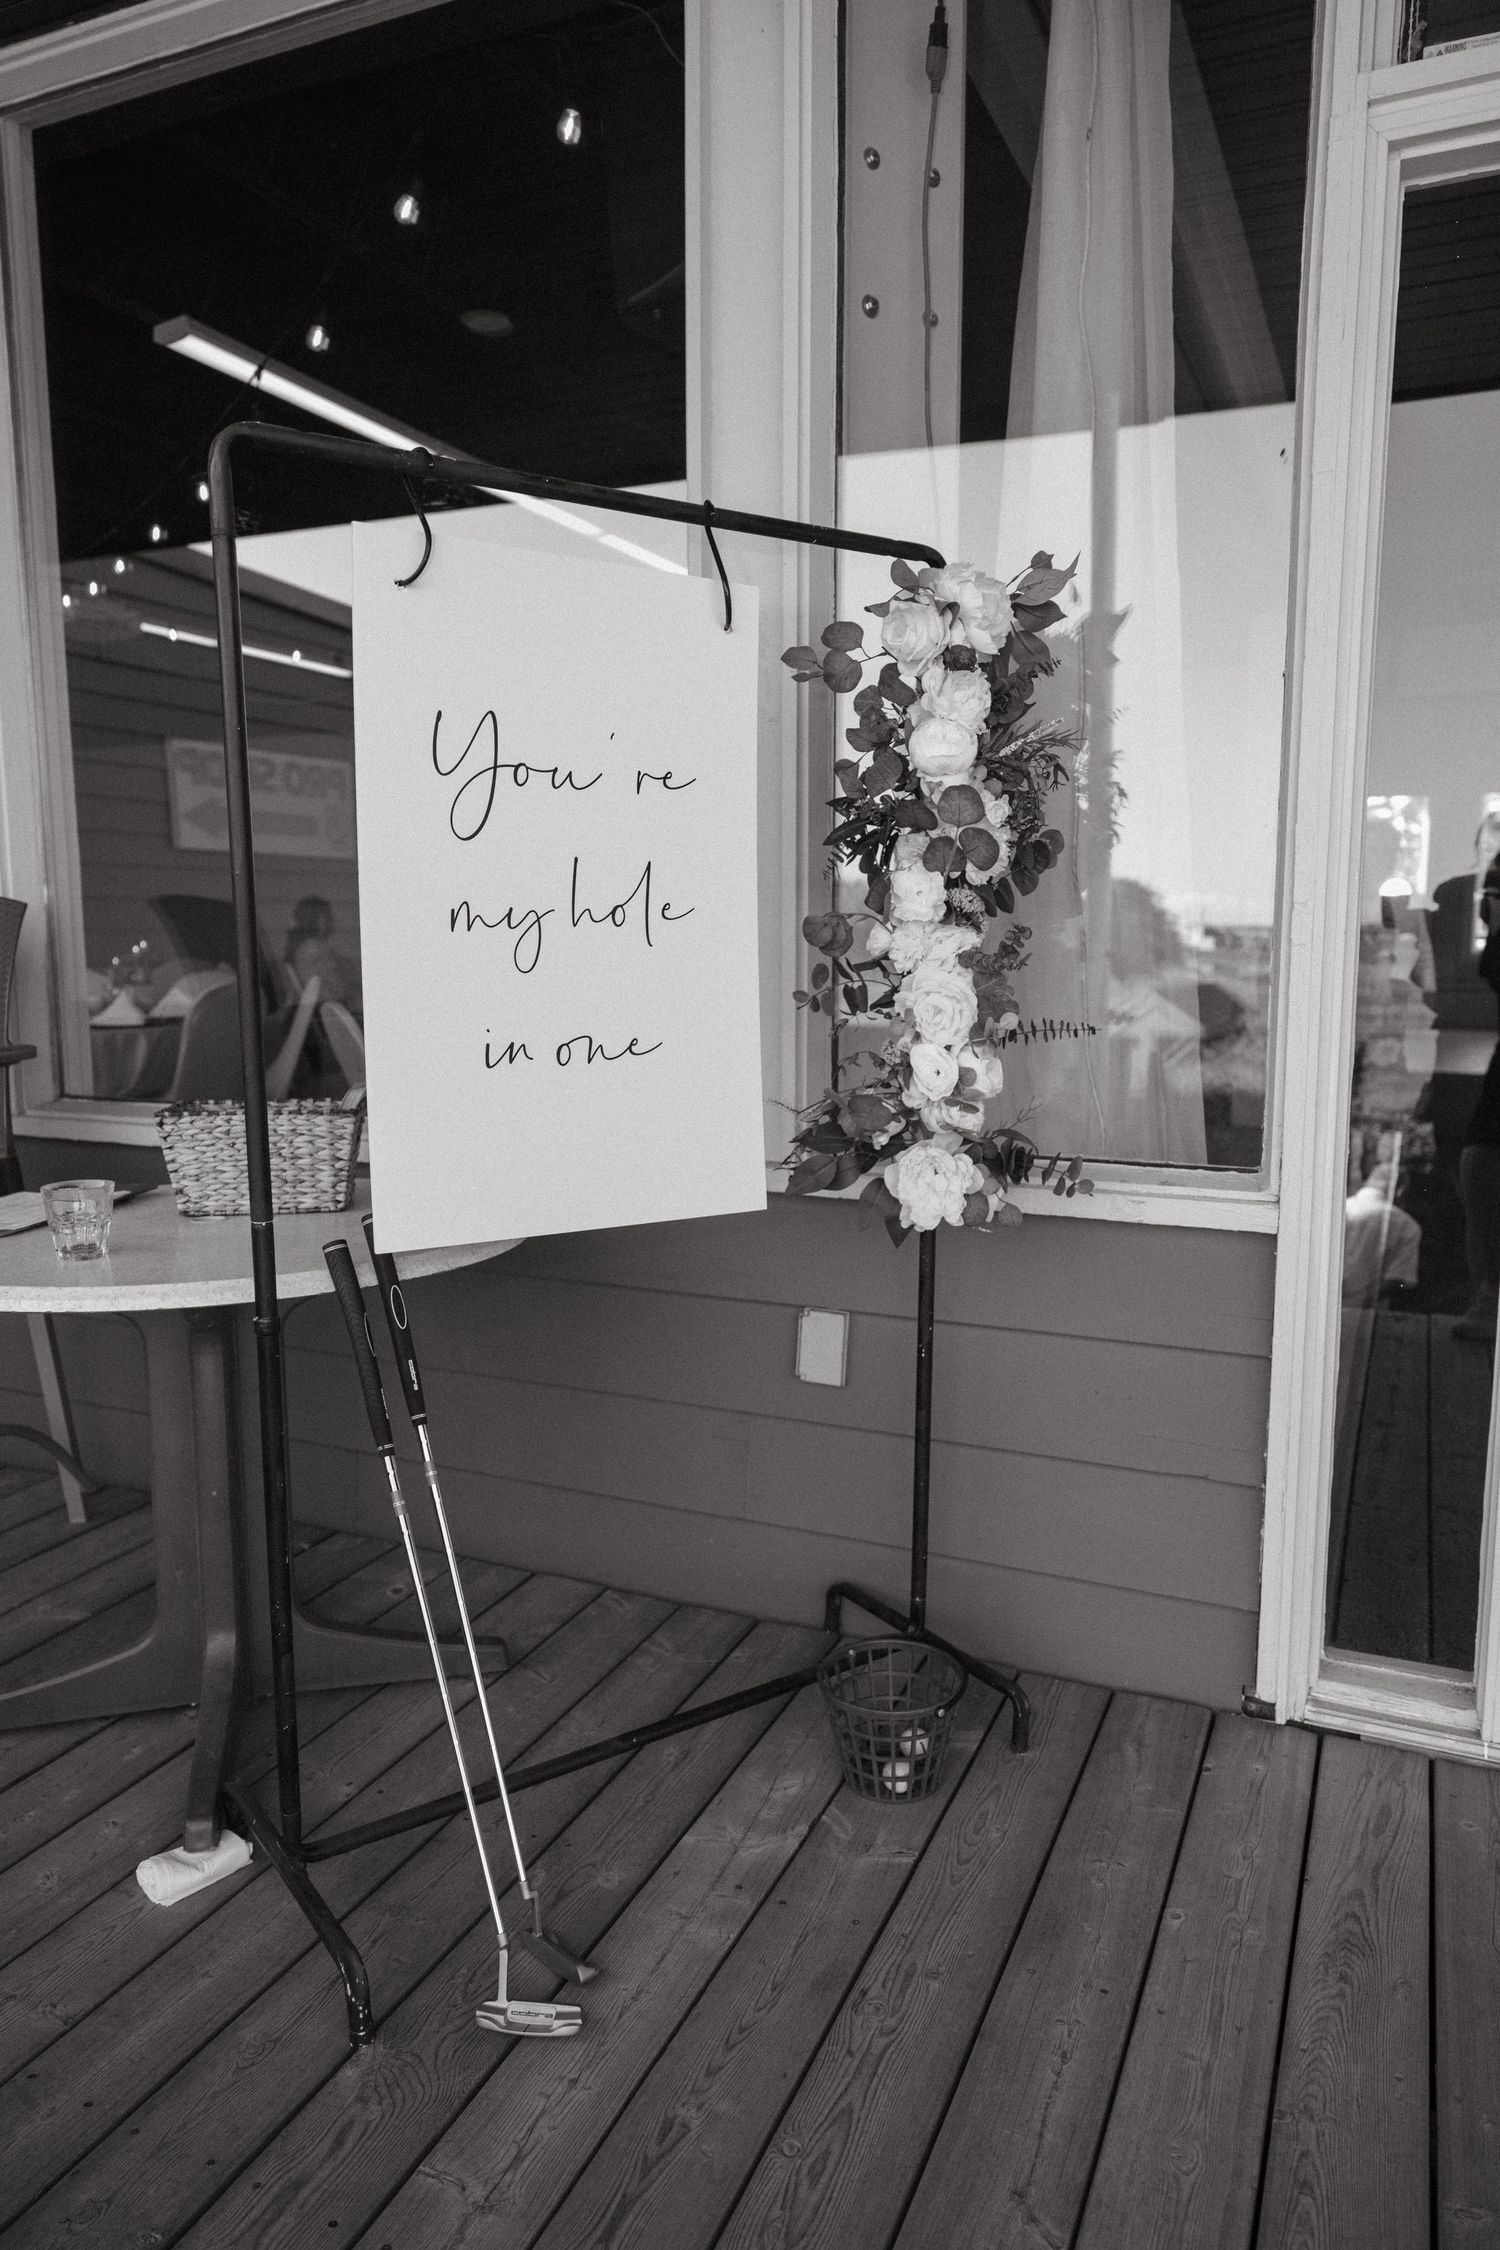 You're
my hole
in one
cobra
cobra
WARNING